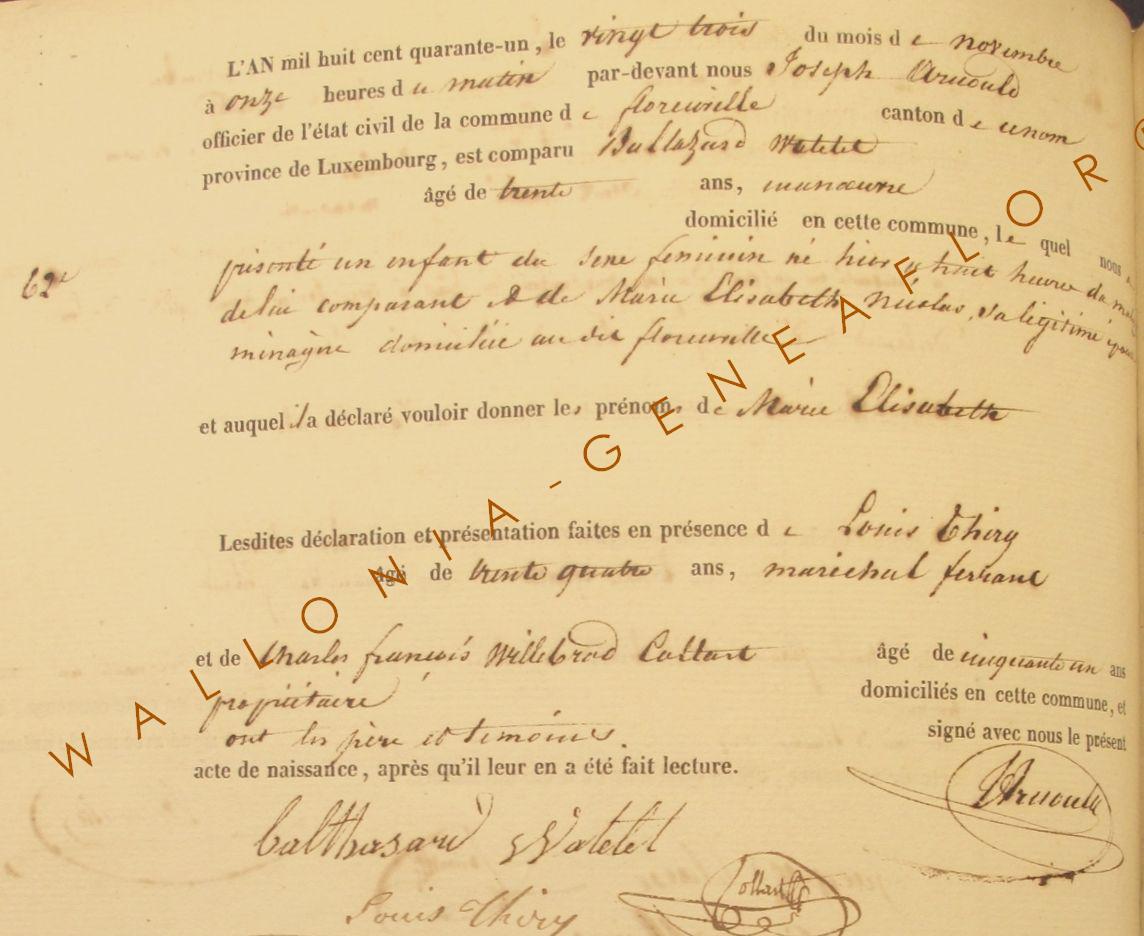 L'AN mil huit cent quarante-un, le vingt trois du mois de novembre
à onze heures du matin par-devant nous Joseph Arnould
officier de l'état civil de la commune de florenville canton d
province de Luxembourg, est comparu Baltazard Watelet
âgé de trente ans, manoeuvre
domicilié en cette commune, lequel nous a
62e
présenté un enfant du sexe feminin né hier a huit heures du
de lui comparant & de Marie Elisabeth Nicolas, sa légitime
ménagère domiciliée au dit florenville
et auquel il a déclaré vouloir donner les prénoms de Marie Elisabeth
Lesdites déclaration et présentation faites en présence de Louis Thiry
âgé de trente quatre ans, maréchal ferrant
et de Charles françois Willebrod Collart âgé de cinquante un ans
propriétaire domiciliés en cette commune, et
ont les père et témoins. signé avec nous le présent
acte de naissance, après qu'il leur en a été fait lecture.
JArnould
balthasard Watelet
Louis Thiry Collart
WALLONIA-GENEAFLOR©